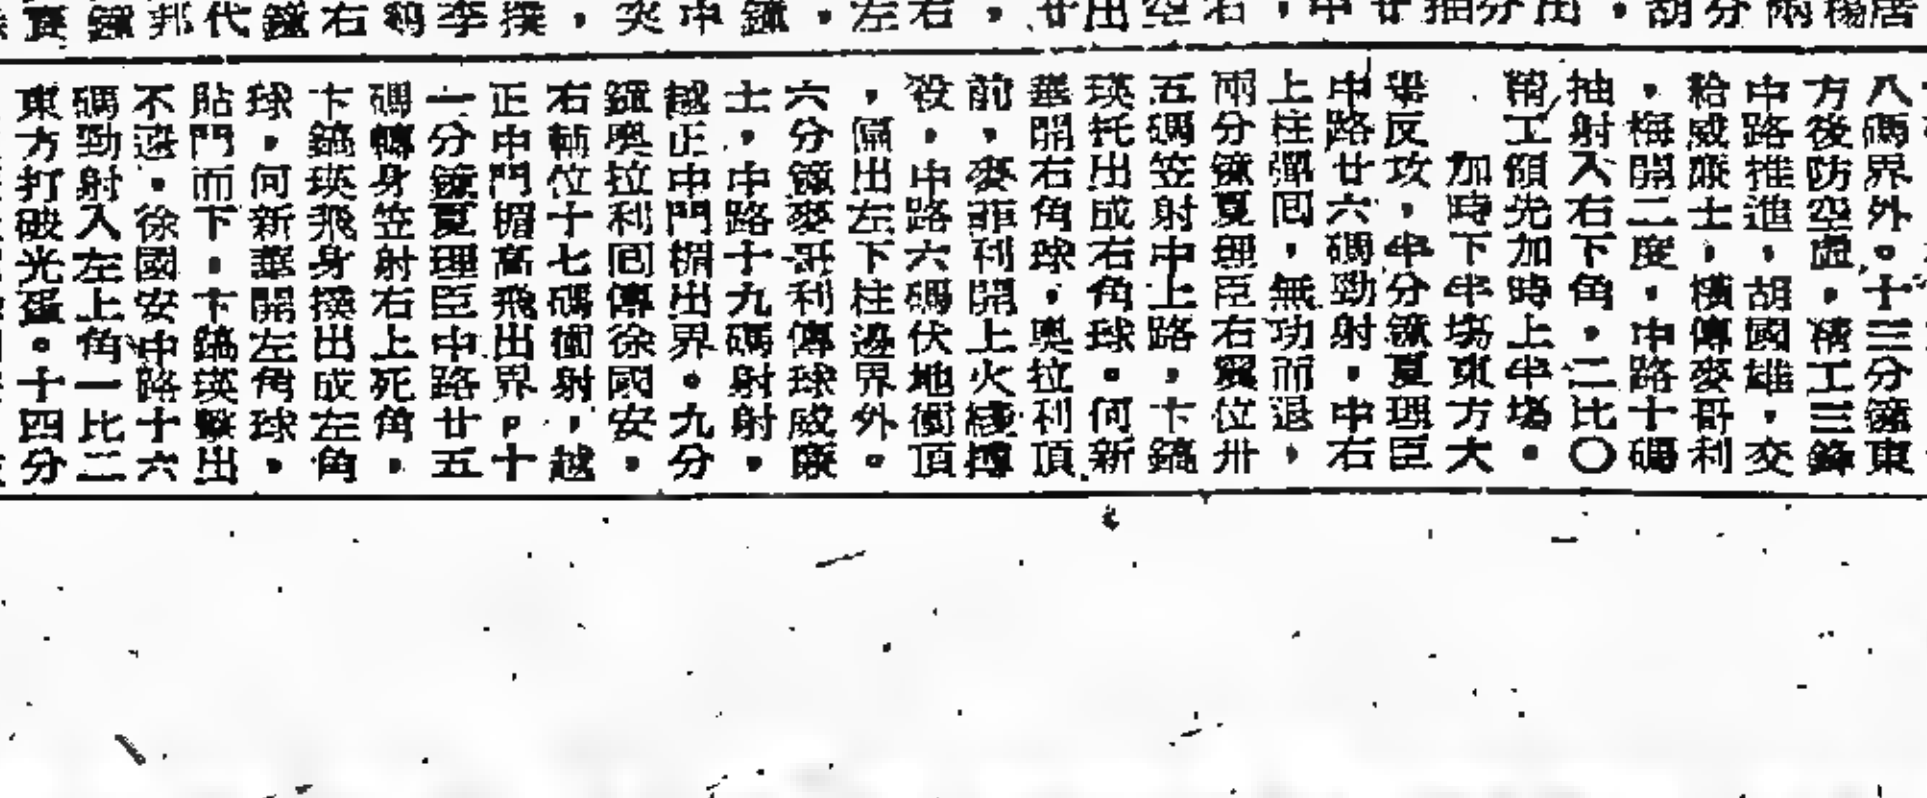 八碼界外。十三分鐘東
方後防空虛，精工三鋒
中路推進，胡國雄，交
給威廉士，橫傳麥哥利
，梅開二度，中路十碼
抽射入右下角，二比〇
精工領先加時上半塲。
加時下半塲東方大
舉反攻，半分鐘夏理臣
中路廿六碼勁射，中右
上柱彈囘，無功而退，
兩分鐘夏理臣右翼位卅
五碼笠射中上路，卞鎬
瑛托出成右角球。何新
華開右角球，奧拉利頂
前，麥菲利開上火綫搏
殺，中路六碼伏地衝頂
，偏出左下柱邊界外。
六分鐘麥哥利傳球威廉
士，中路十九碼射射，
越正中門楣出界。九分
鐘奧拉利囘傳徐國安，
右輔位十七碼衝射，越
正中門楣高飛出界。十
一分鐘夏理臣中路廿五
碼轉身笠射右上死角，
卞鎬瑛飛身撲出成左角
球，何新華開左角球，
貼門而下，卞鎬瑛擊出
不遠，徐國安中路十六
碼勁射入左上角一比二
東方打破光蛋。十四分